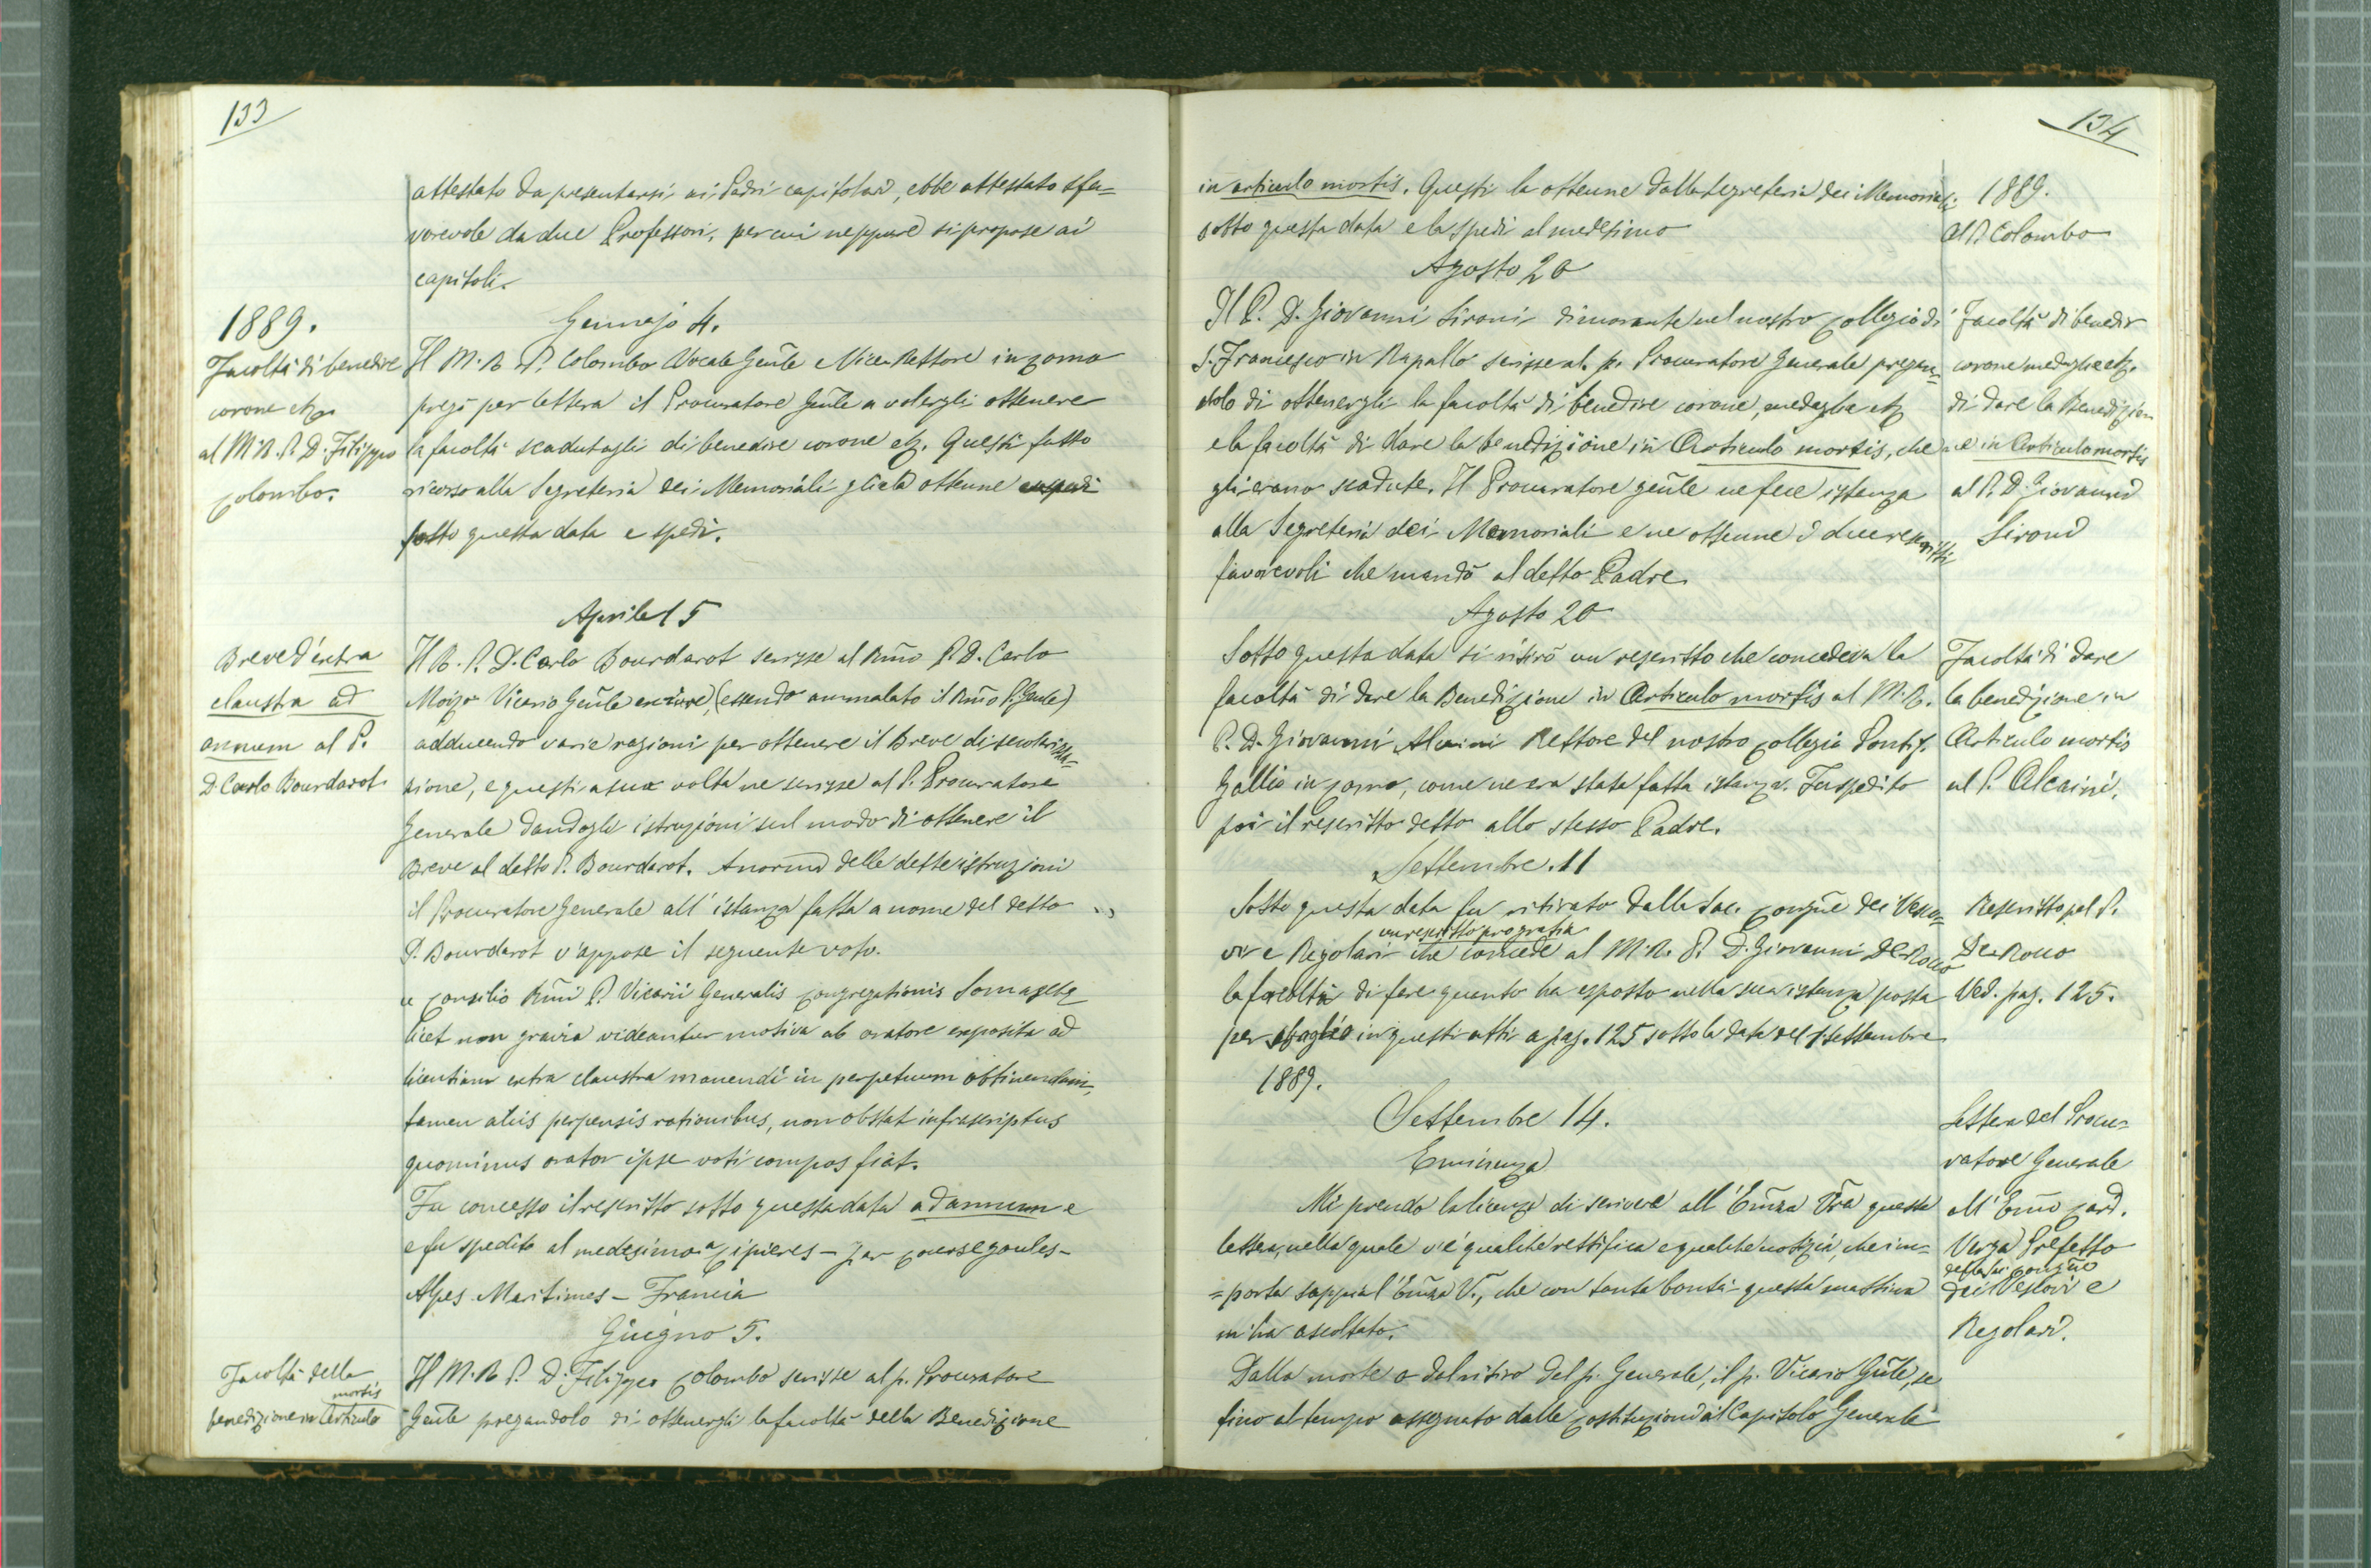 133
attestato da presentarsi ai Padri capitolari, ebbe attestato sfa-
vorevole da due Professori, per cui neppure si propose ai
capitoli.
1889.
Gennajo 4.
Facoltà di benedire
corone etz.
al M. R. P. D. Filippo
Colombo.
Il M. R. P. Colombo Vocale Gen̄le e Vice Rettore in Como
pregò per lettera il Procuratore Gen̄le a volergli ottenere
la facoltà scadutagli di benedire corone etz. Questi fatto
ricorso alla Segreteria dei Memoriali gliela ottenne
sotto questa data e spedì.
Aprile 15
Breve d'extra
claustra ad
annum al P.
D. Carlo Bourdarot
Il R. P. D. Carlo Bourdarot scrisse al Rm̄o P. D. Carlo
Moizo Vicario Gen̄le ex iure, (essendo ammalato il Rm̄o P. Gnle)
adducendo varie ragioni per ottenere il Breve di secolarizza-
zione, e questi a sua volta ne scrisse al P. Procuratore
Generale dandogli istruzioni sul modo di ottenere il
Breve al detto P. Bourdarot. A norma delle dette istruzioni
il Procuratore Generale all'istanza fatta a nome del detto
P. Bourdarot v'appose il seguente voto.
e Consilio Rm̄i P. Vicarii Generalis Congregationis Somaschæ
licet non gravia videantur motiva ab oratore exposita ad
licentiam extra claustra manendi in perpetuum obtinendam,
tamen aliis perpensis rationibus, non obstat infrascriptus
quominus orator ipse voti compos fiat.
Fu concesso il rescritto sotto questa data ad annum e
e fu spedito al medesimo a Cipieres - par Coursegoules -
Alpes Maritimes - Francia
Giugno 5.
Facoltà della
benedizione in Articulo
mortis
Il M. R. P. D. Filippo Colombo scrisse al p. Procuratore
Gen̄le pregandolo di ottenergli la facoltà della Benedizione
134
in articulo mortis. Questi la ottenne dalla Segreteria dei Memoriali
sotto questa data e la spedì al medesimo
1889.
Al P. Colombo
Agosto 20
Il P. D. Giovanni Sironi dimorante nel nostro Collegio di
S. Francesco in Rapallo scrisse al p. Procuratore Generale pregan-
dolo di ottenergli la facoltà di benedire corone, medaglie etz
e la facoltà di dare la benedizione in Articulo mortis, che
gli erano scadute. Il Procuratore gen̄le ne fece istanza
alla Segreteria dei Memoriali e ne ottenne i due rescritti
favorevoli che mandò al detto Padre.
Facoltà di benedir
corone medaglie etz.
di dare la Benedizion
ne in Articulo mortis
al P. D. Giovanni
Sironi
Agosto 20
Sotto questa data si ritirò un rescritto che concedeva la
facoltà di dare la Benedizione in Articulo mortis al M. R.
P. D. Giovanni Alcaini Rettore del nostro Collegio Pontif.
Gallio in Como, come ne era stata fatta istanza. Fu spedito
poi il rescritto detto allo stesso Padre.
Facoltà di dare
la benedizione in
Articulo mortis
al P. Alcaini.
Settembre. 11
Sotto questa data fu ritirato dalla Sac. Congn̄e dei Vesco-
un rescritto pro gratia
vi e Regolari che concede al M. R. P. D. Giovanni De Rocco
la facoltà di fare quanto ha esposto nella sua istanza posta
per sbaglio in questi atti a pag. 125 sotto la data del 1 settembre
1889.
Rescritto pel P.
De Rocco
Ved. pag. 125.
Settembre 14.
Eminenza
Mi prendo la licenza di scrivere all'Em̄za Vr̄a questa
lettera, nella quale v'è qualche rettifica e qualche notizia, che im-
=porta sappia l'Em̄za V., che con tanta bontà questa mattina
m'ha ascoltato.
Dalla morte o dal ritiro del p. Generale, il p. Vicario Gn̄le, se
fino al tempo assegnato dalle Costituzioni al Capitolo Generale
Lettera del Procu-
ratore Generale
All'Em̄o Card.
Verga Prefetto
della S. Congn̄e
dei Vescovi e
Regolari.